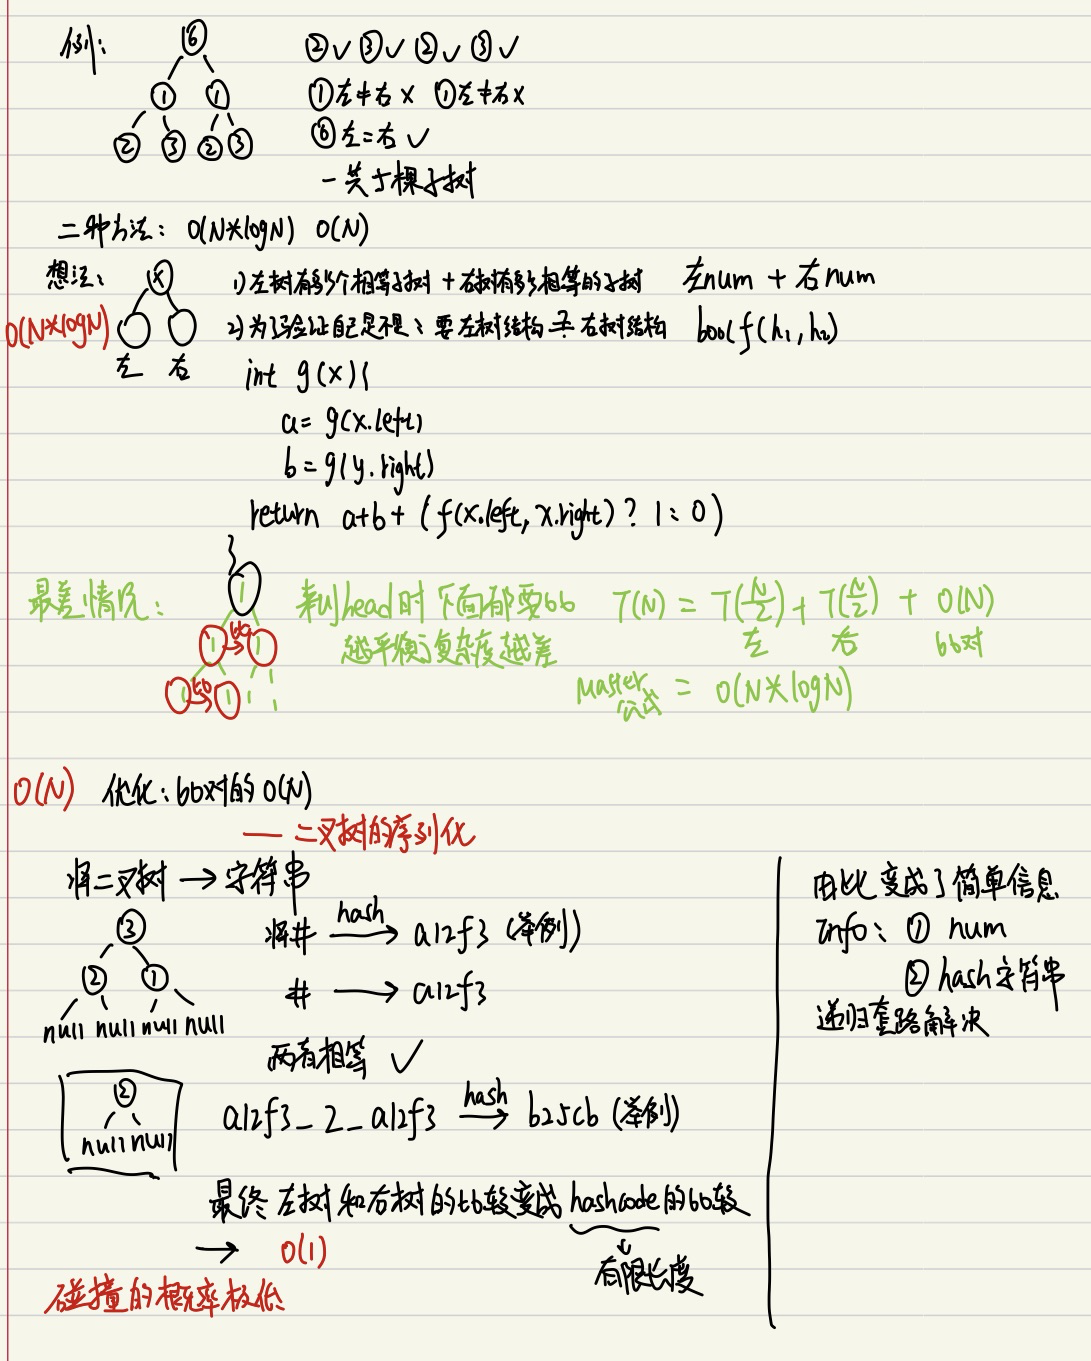 例:
6
1 1
2 3 2 3
②✓ ③✓ ②✓ ③✓
①左≠右× ①左≠右×
⑥左=右✓
一共5棵子树
二种方法: O(N*logN) O(N)
想法:
O(N*logN)
X
左 右
1)左树有多少个相等子树 + 右树有多少相等的子树 左num + 右num
2)为了验证自己是不是: 要左树结构 =? 右树结构 bool f(h1, h2)
int g(x){
a = g(x.left)
b = g(y.right)
return a+b+ (f(x.left, x.right) ? 1 : 0)
最差情况:
1
1 比 1
1 比 1 1 1
来到head时 下面都要比
越平衡复杂度越差
T(N) = T(N/2) + T(N/2) + O(N)
左 右 比对
Master公式 = O(N*logN)
O(N) 优化: 比对的O(N)
—— 二叉树的序列化
将二叉树 → 字符串
3
2 1
null null null null
将# hash→ a12f3 (举例)
# → a12f3
两者相等 ✓
2
null null
a12f3_2_a12f3 hash→ b25cb (举例)
最终 左树和右树的比较变成 hashcode的比较
→ O(1)
有限长度
碰撞的概率极低
由此变成了简单信息
Info: ① num
② hash字符串
递归套路解决